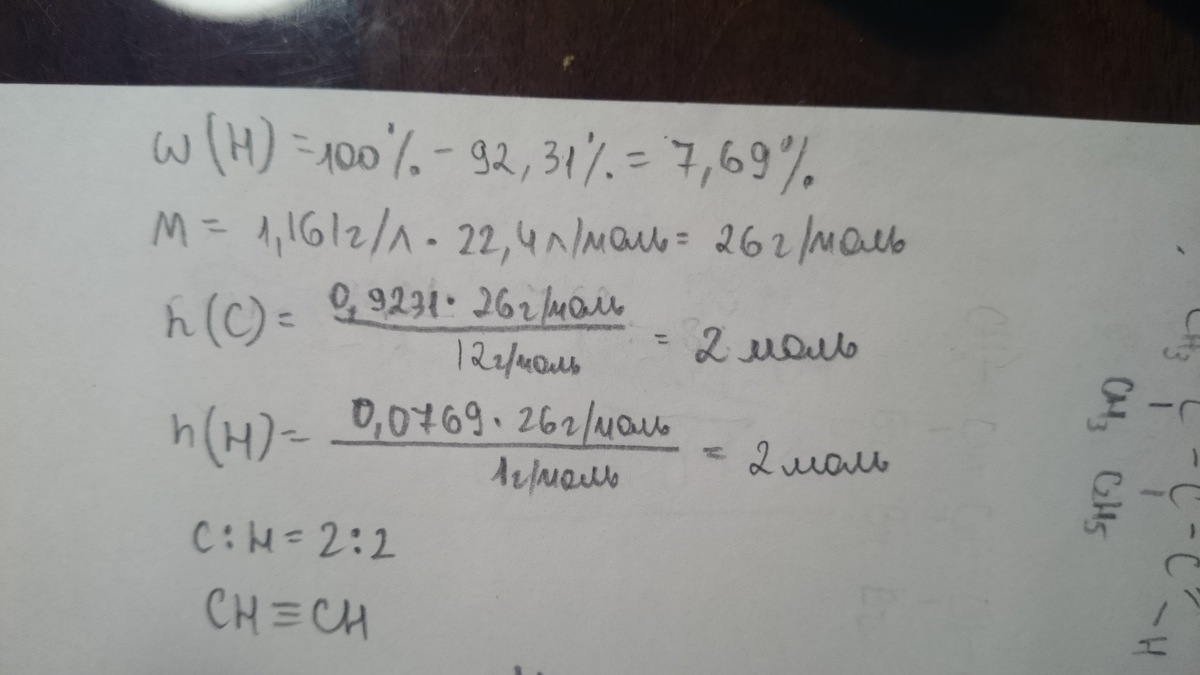 ω(H) = 100% - 92,31% = 7,69%
M = 1,161г/л · 22,4л/моль = 26г/моль
n(C) = 0,9231 · 26г/моль / 12г/моль = 2 моль
n(H) = 0,0769 · 26г/моль / 1г/моль = 2 моль
C:H = 2:2
CH≡CH
CH3 C = C - C
CH3 C2H5 - H